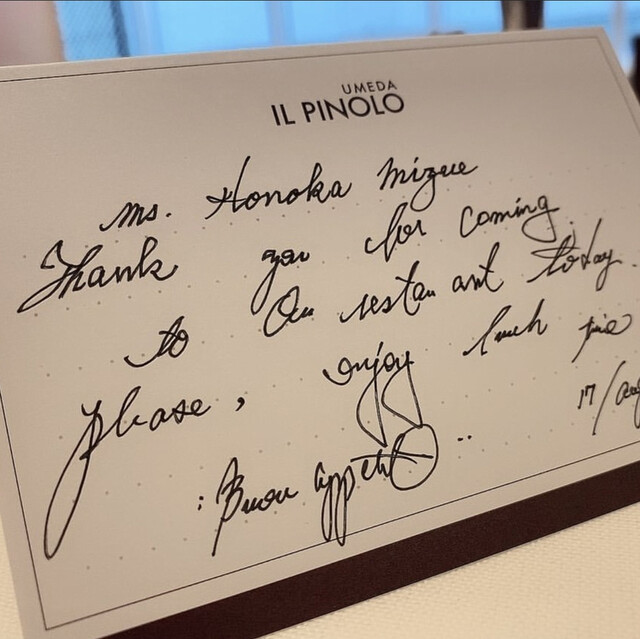 UMEDA
IL PINOLO
ms. Honoka Mizue
Thank you for coming
to Our restaurant today.
please, enjoy lunch
17/Aug
Buon appetito